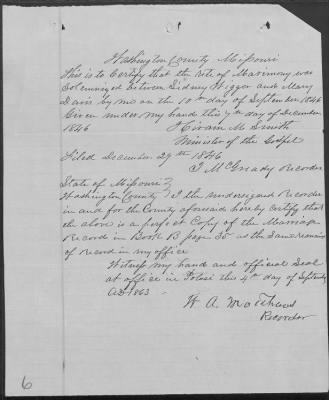 Washington County Missouri
This is to Certify that the rite of Matrimony was
Solemnized between Sidney Wigger and Mary
Davis by me on the 10th day of September 1846
Given under my hand this 7th day of December
1846 Hiram M Smith
Minister of the Gospel
Filed December 29th 1846
J McGready Recorder
State of Missouri }
Washington County } I the undersigned Recorder
in and for the County aforesaid hereby certify that
the above is a perfect Copy of the Marriage
Record in Book B page 35 as the Same remains
of record in my office
Witness my hand and official Seal
at office in Potosi this 4th day of September
AD 1863
W. A.
Recorder
6